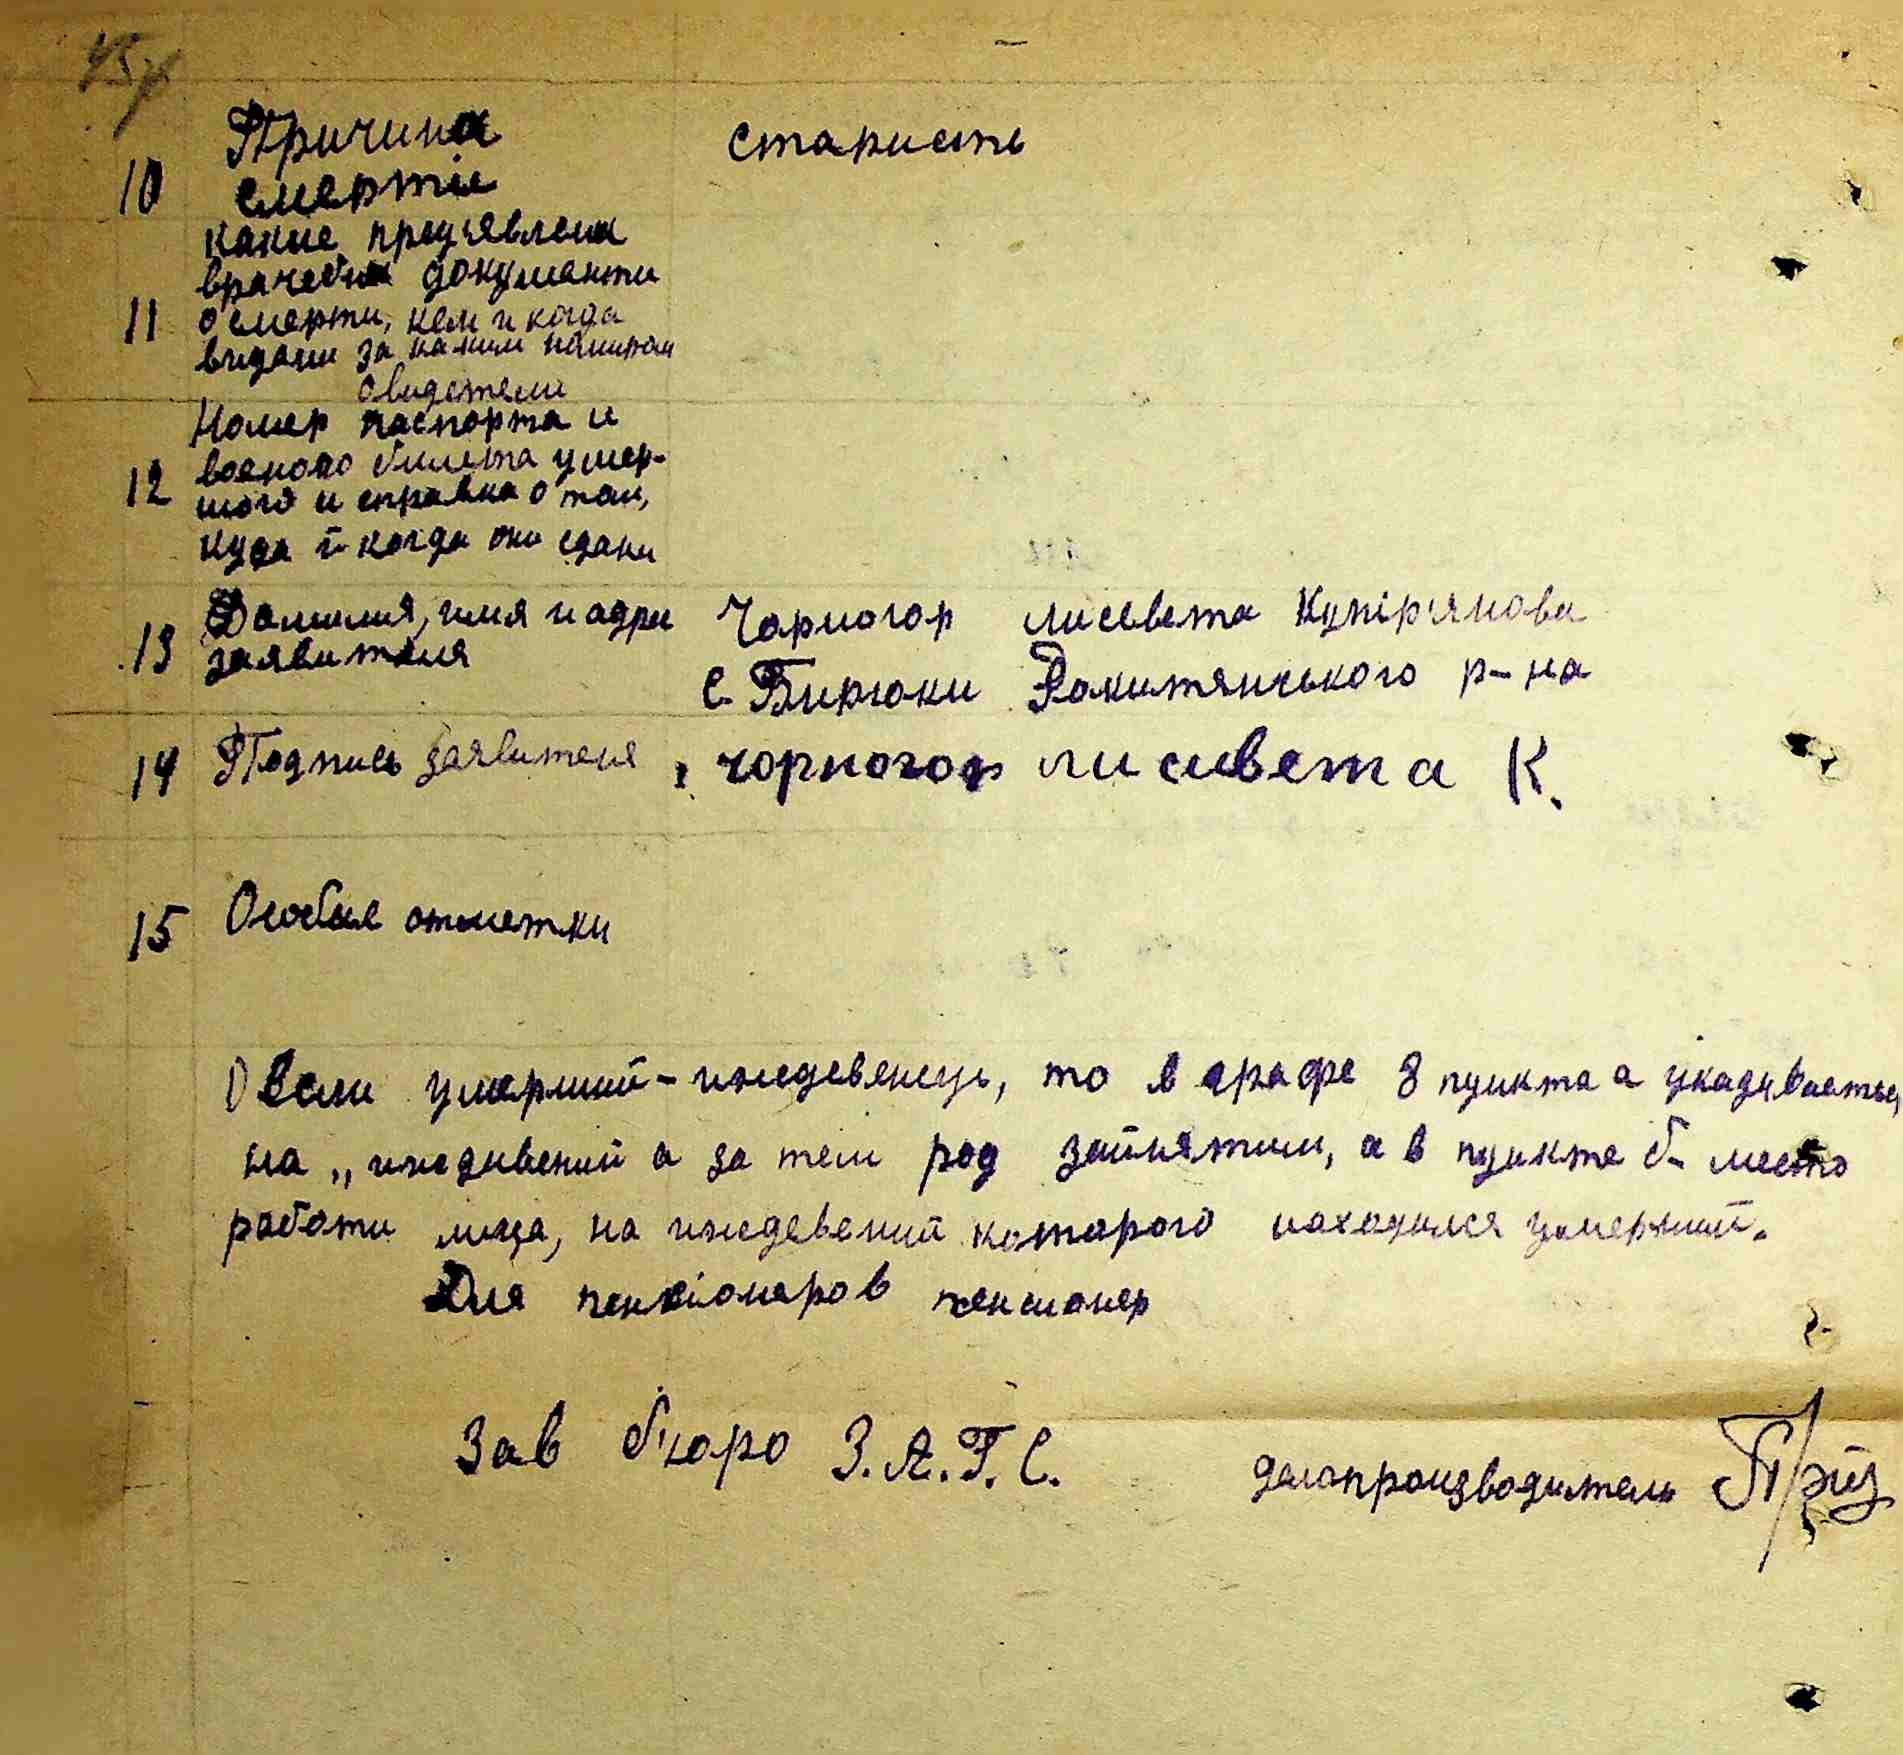 Причина
10 смерти старисть
какие предъявлени
врачебни документи
11 о смерти, кем и когда
видани за каким номиром
свидетели
Номер паспорта и
12 военого билета умер-
шого и справка о том,
куда й когда они сдани
Фамилия, имя и адри Чорногор лисевета Купір'янова
13 заявителя с. Бирюки Рокитянського р-на
14 Подпись заявителя чорногор лисивета К.
15 Особие отметки
1) Если умерший - иждевенець, то в графе 8 пункта а указиваеться
на „ иждивений а за тем род зайнятии, а в пункте б - место
работи лица, на иждевений каторого находился умерший.
Для пенсіонеров пенсионер
Зав бюро З.А.Г.С. делопроизводитель